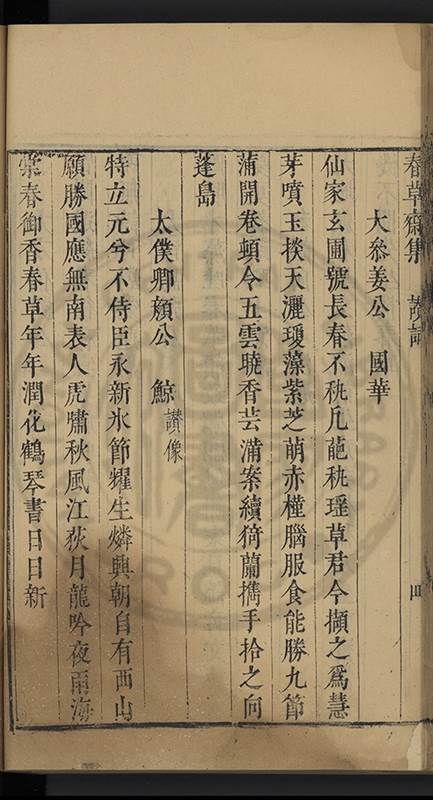 春草齋集 讚詩 四
大叅姜公 國華
仙家玄圃號長春不秇凡葩秇瑶草君今擷之爲慧
芽噴玉掞天灑瓊藻紫芝萌赤橦腦服食能勝九節
蒲開卷頓令五雲曉香芸滿案續猗蘭擕手拾之向
蓬島
太僕卿顏公 鯨 讃像
特立元兮不侍臣永新氷節耀生燐興朝自有西山
願勝國應無南表人虎嘯秋風江荻月龍吟夜雨海
棠春御香春草年年潤花鶴琴書日日新